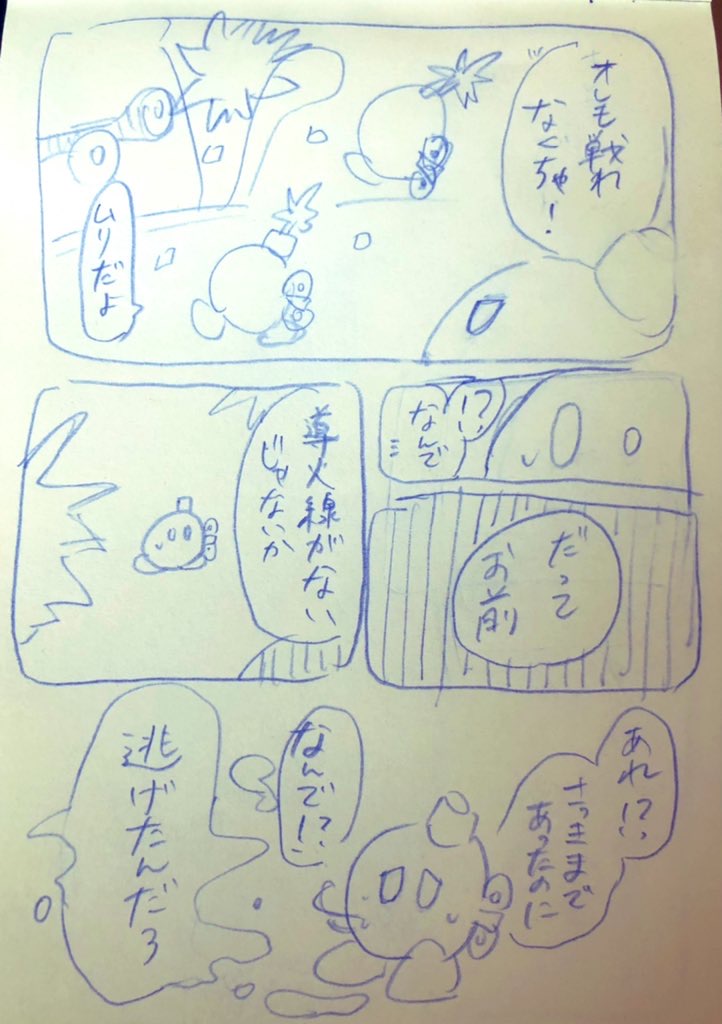 オレも戦わ
なくちゃ!
ムリだよ
!?
なんで
だって
お前
導火線がない
じゃないか
あれ!?
さっきまで
あったのに
なんで!?
逃げたんだろ